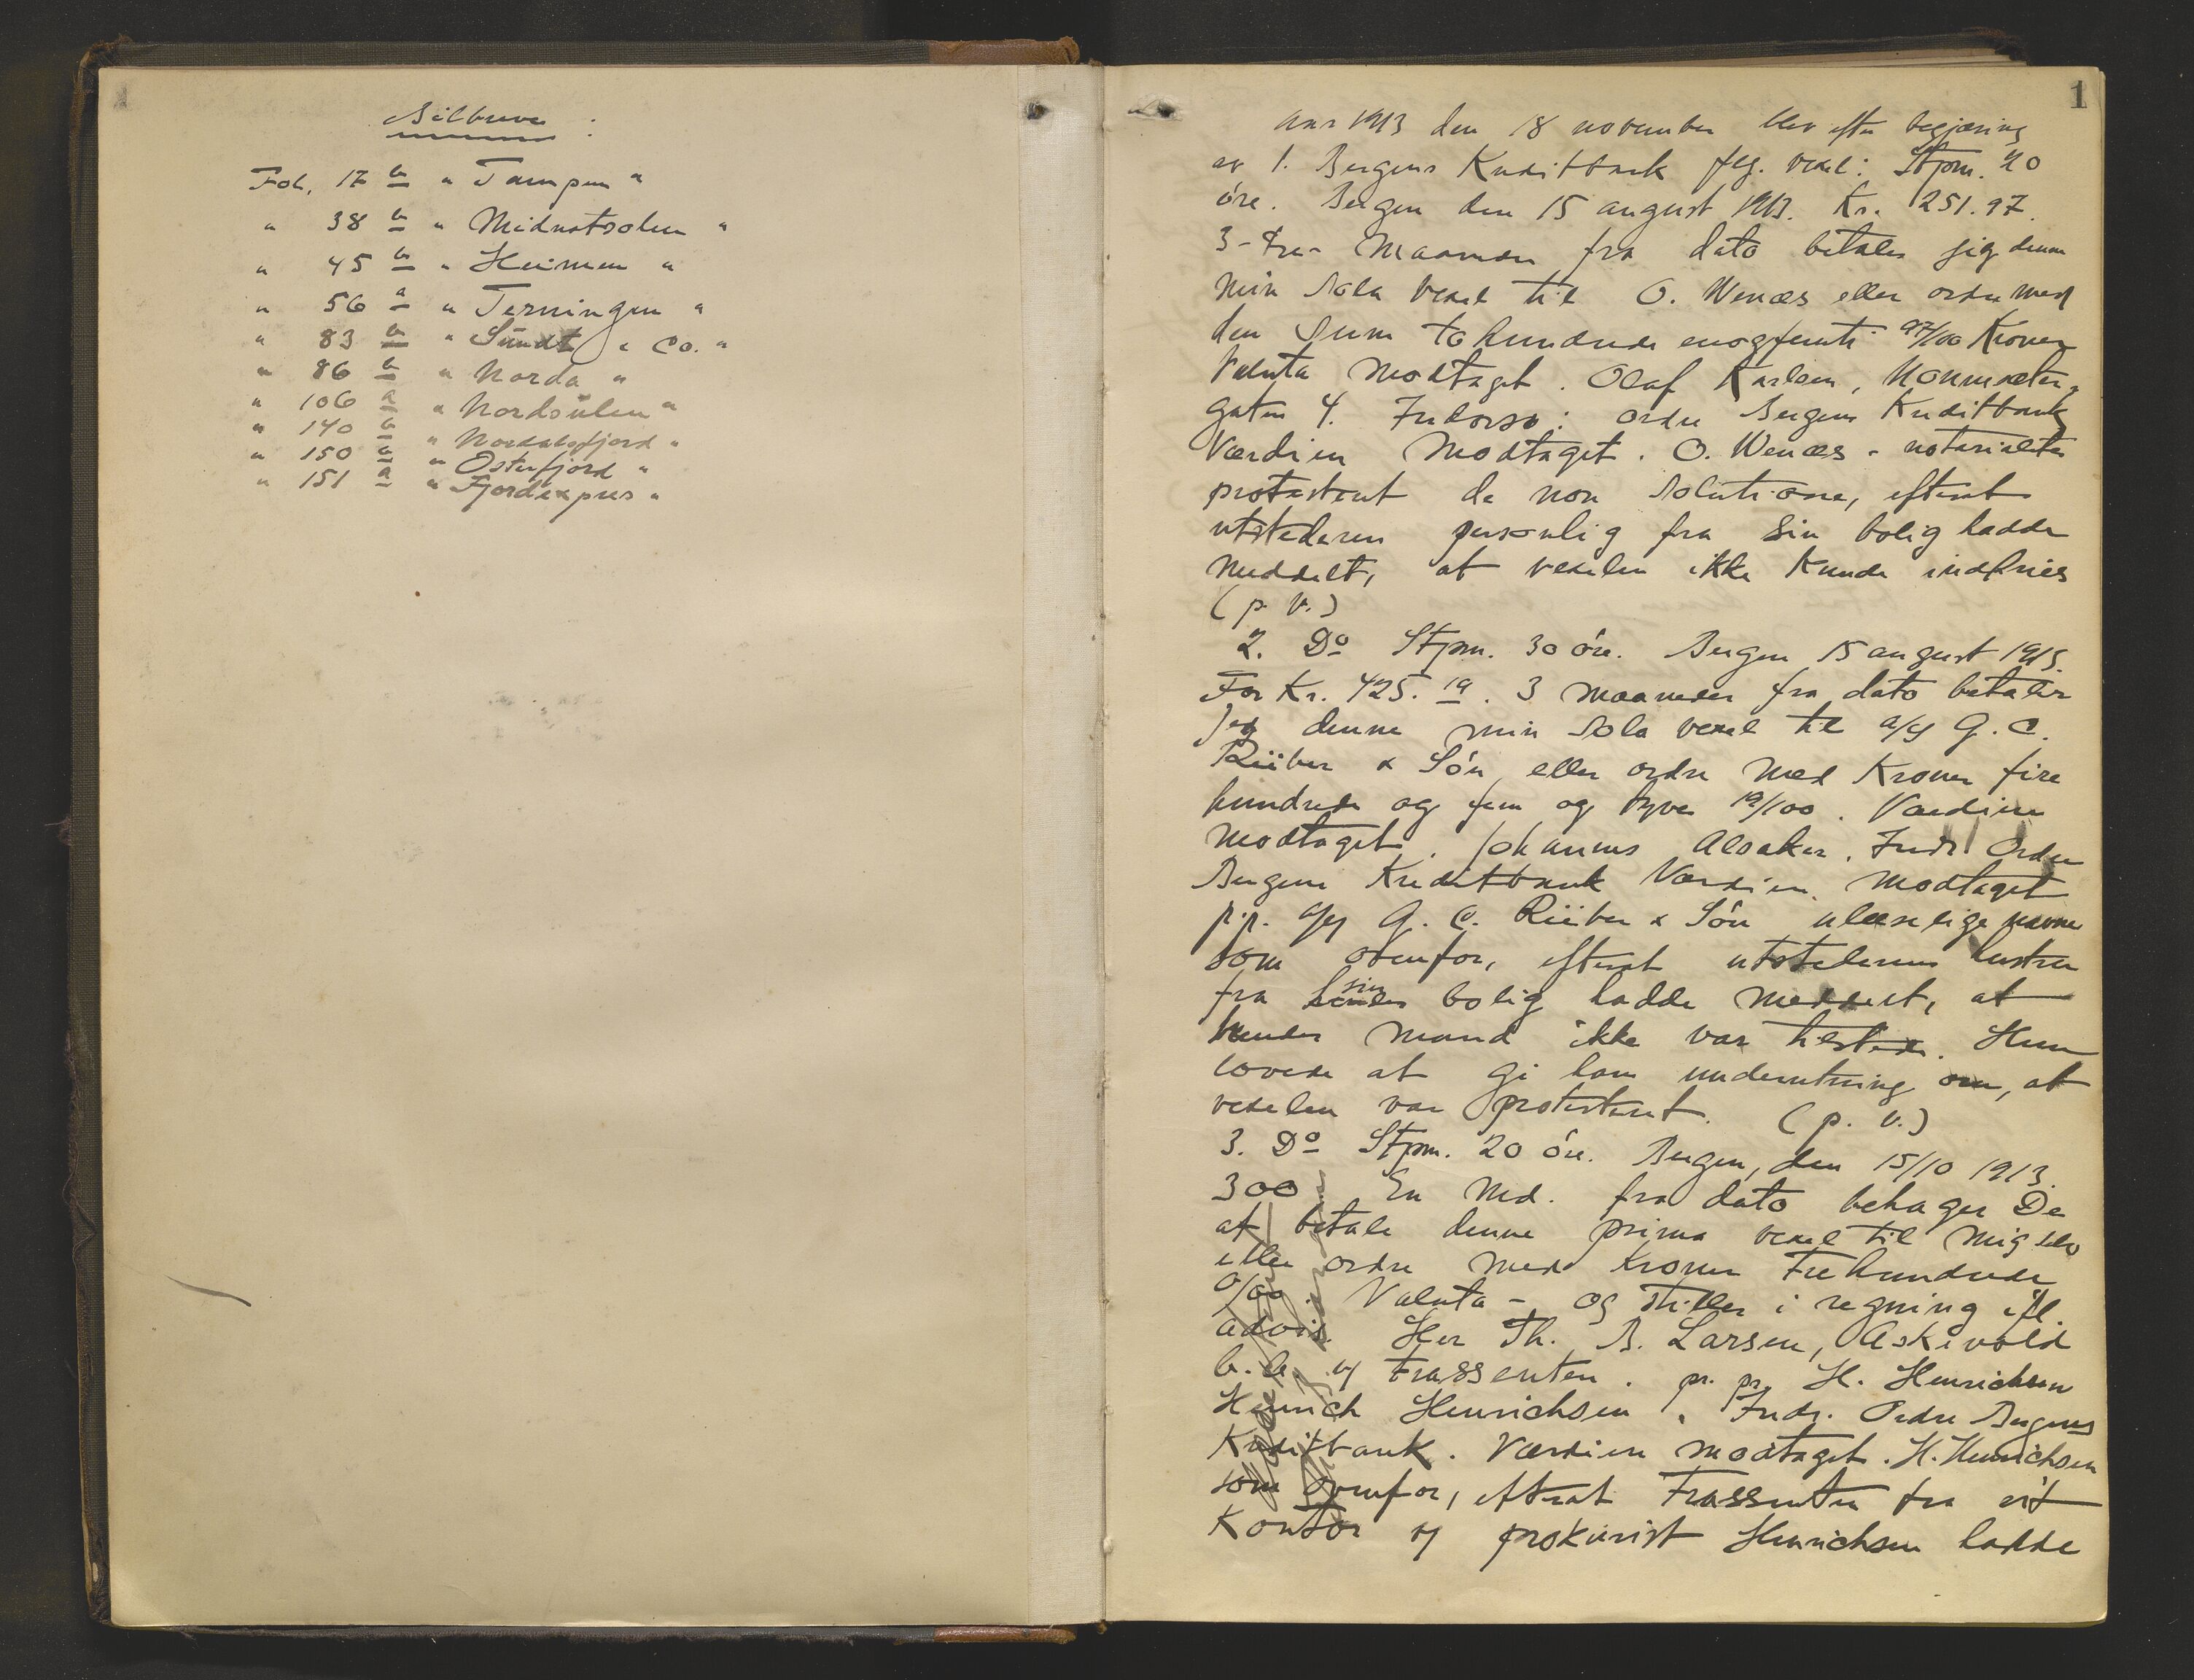 Bilbreve :
Fol. 17 b " Tampen "
" 38 b " Midnatsolen "
" 45 b " Heimen "
" 56 a " Terningen "
" 83 b " Sundt & Co. "
" 86 b " Norda "
" 106 a " Nordsülen "
" 140 b " Nordalsfjord "
" 150 b " Osterfjord "
" 151 a " Fjordexpres "
1
Aar 1913 den 18 november blev efter begjæring
av 1. Bergens Kreditbank flg. vexel: Stpm. 20
öre. Bergen den 15 august 1913. Kr. 251.97.
3-tre- Maaneder fra dato betaler jeg denne
min Sola vexel til O. Wenæs eller ordre med
den Sum tohundrede enogfemti 97/100 Kroner
Valuta Modtaget. Olaf Karlsen, Nonnesæter-
gaten 4. Indorso: ordre Bergens Kreditbank
Værdien Modtaget. O. Wenæs - notarialiter
protestert de non Solutione, efterat
utstederen personlig fra sin bolig hadde
meddelt, at vexelen ikke kunde indfries
(p. v.)
2. Do Stpm. 30 öre. Bergen 15 august 1913.
For Kr. 425.19. 3 maaneder fra dato betaler
Jeg denne min Sola vexel til a/s G. C.
Rieber & Sön eller ordre med Kroner fire
hundrede og fem og tyve 19/100. Værdien
Modtaget. Johannes Alsaker. Inds. Ordre
Bergens Kreditbank Værdien Modtaget
p.p. a/s G. C. Rieber & Sön ulæselige navne
som ovenfor, efterat utstederens hustru
fra sin bolig hadde meddelt, at
hendes mand ikke var tilstede. Hun
lovede at gi ham underretning om, at
vexelen var protestert. (p. v.)
3. Do Stpm. 20 öre. Bergen, den 15/10 1913.
300 En Md. fra dato behager De
at betale denne prima vexel til mig selv
eller ordre med Kroner Trehundrede
0/00. Valuta - og stilles i regning ifl.
advis. Her Th. B. Larsen, Askevold
b. h. og Trassenten. pr. pr. H. Henrichsen
Henrich Henrichsen. Inds. Ordre Bergens
Kreditbank. Værdien modtaget. H. Henrichsen
som ovenfor, efterat Trassenten fra sit
Kontor ved prokurist Henrichsen hadde